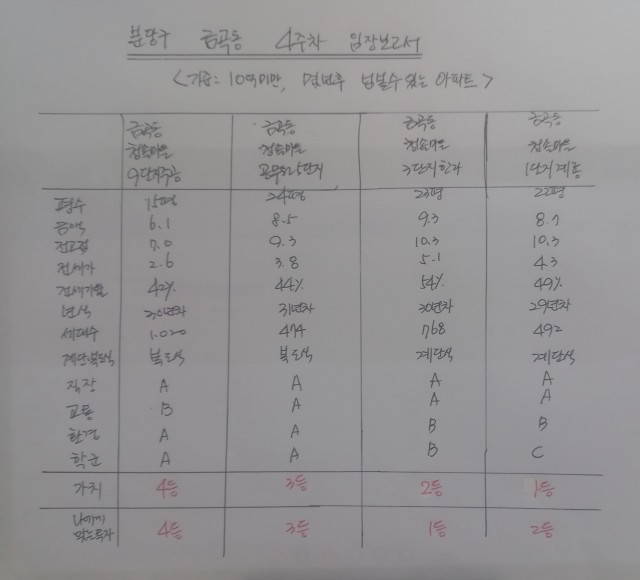 분당구 금곡동 4주차 임장보고서
<기준: 10억미만, 몇년후 넘볼수 있는 아파트>
금곡동 금곡동 금곡동 금곡동
청솔마을 청솔마을 청솔마을 청솔마을
9단지주공 공무원 5단지 2단지한라 1단지계룡
평수 15평 24평 23평 22평
금액 6.1 8.5 9.3 8.7
전고점 7.0 9.3 10.3 10.3
전세가 2.6 3.8 5.1 4.3
전세가율 42% 44% 54% 49%
년식 30년차 31년차 30년차 29년차
세대수 1.020 474 768 492
계단복도식 복도식 복도식 계단식 계단식
직장 A A A A
교통 B A A A
환경 A A B B
학군 A A B C
가치 4등 3등 2등 1등
나에게
맞는투자 4등 3등 1등 2등